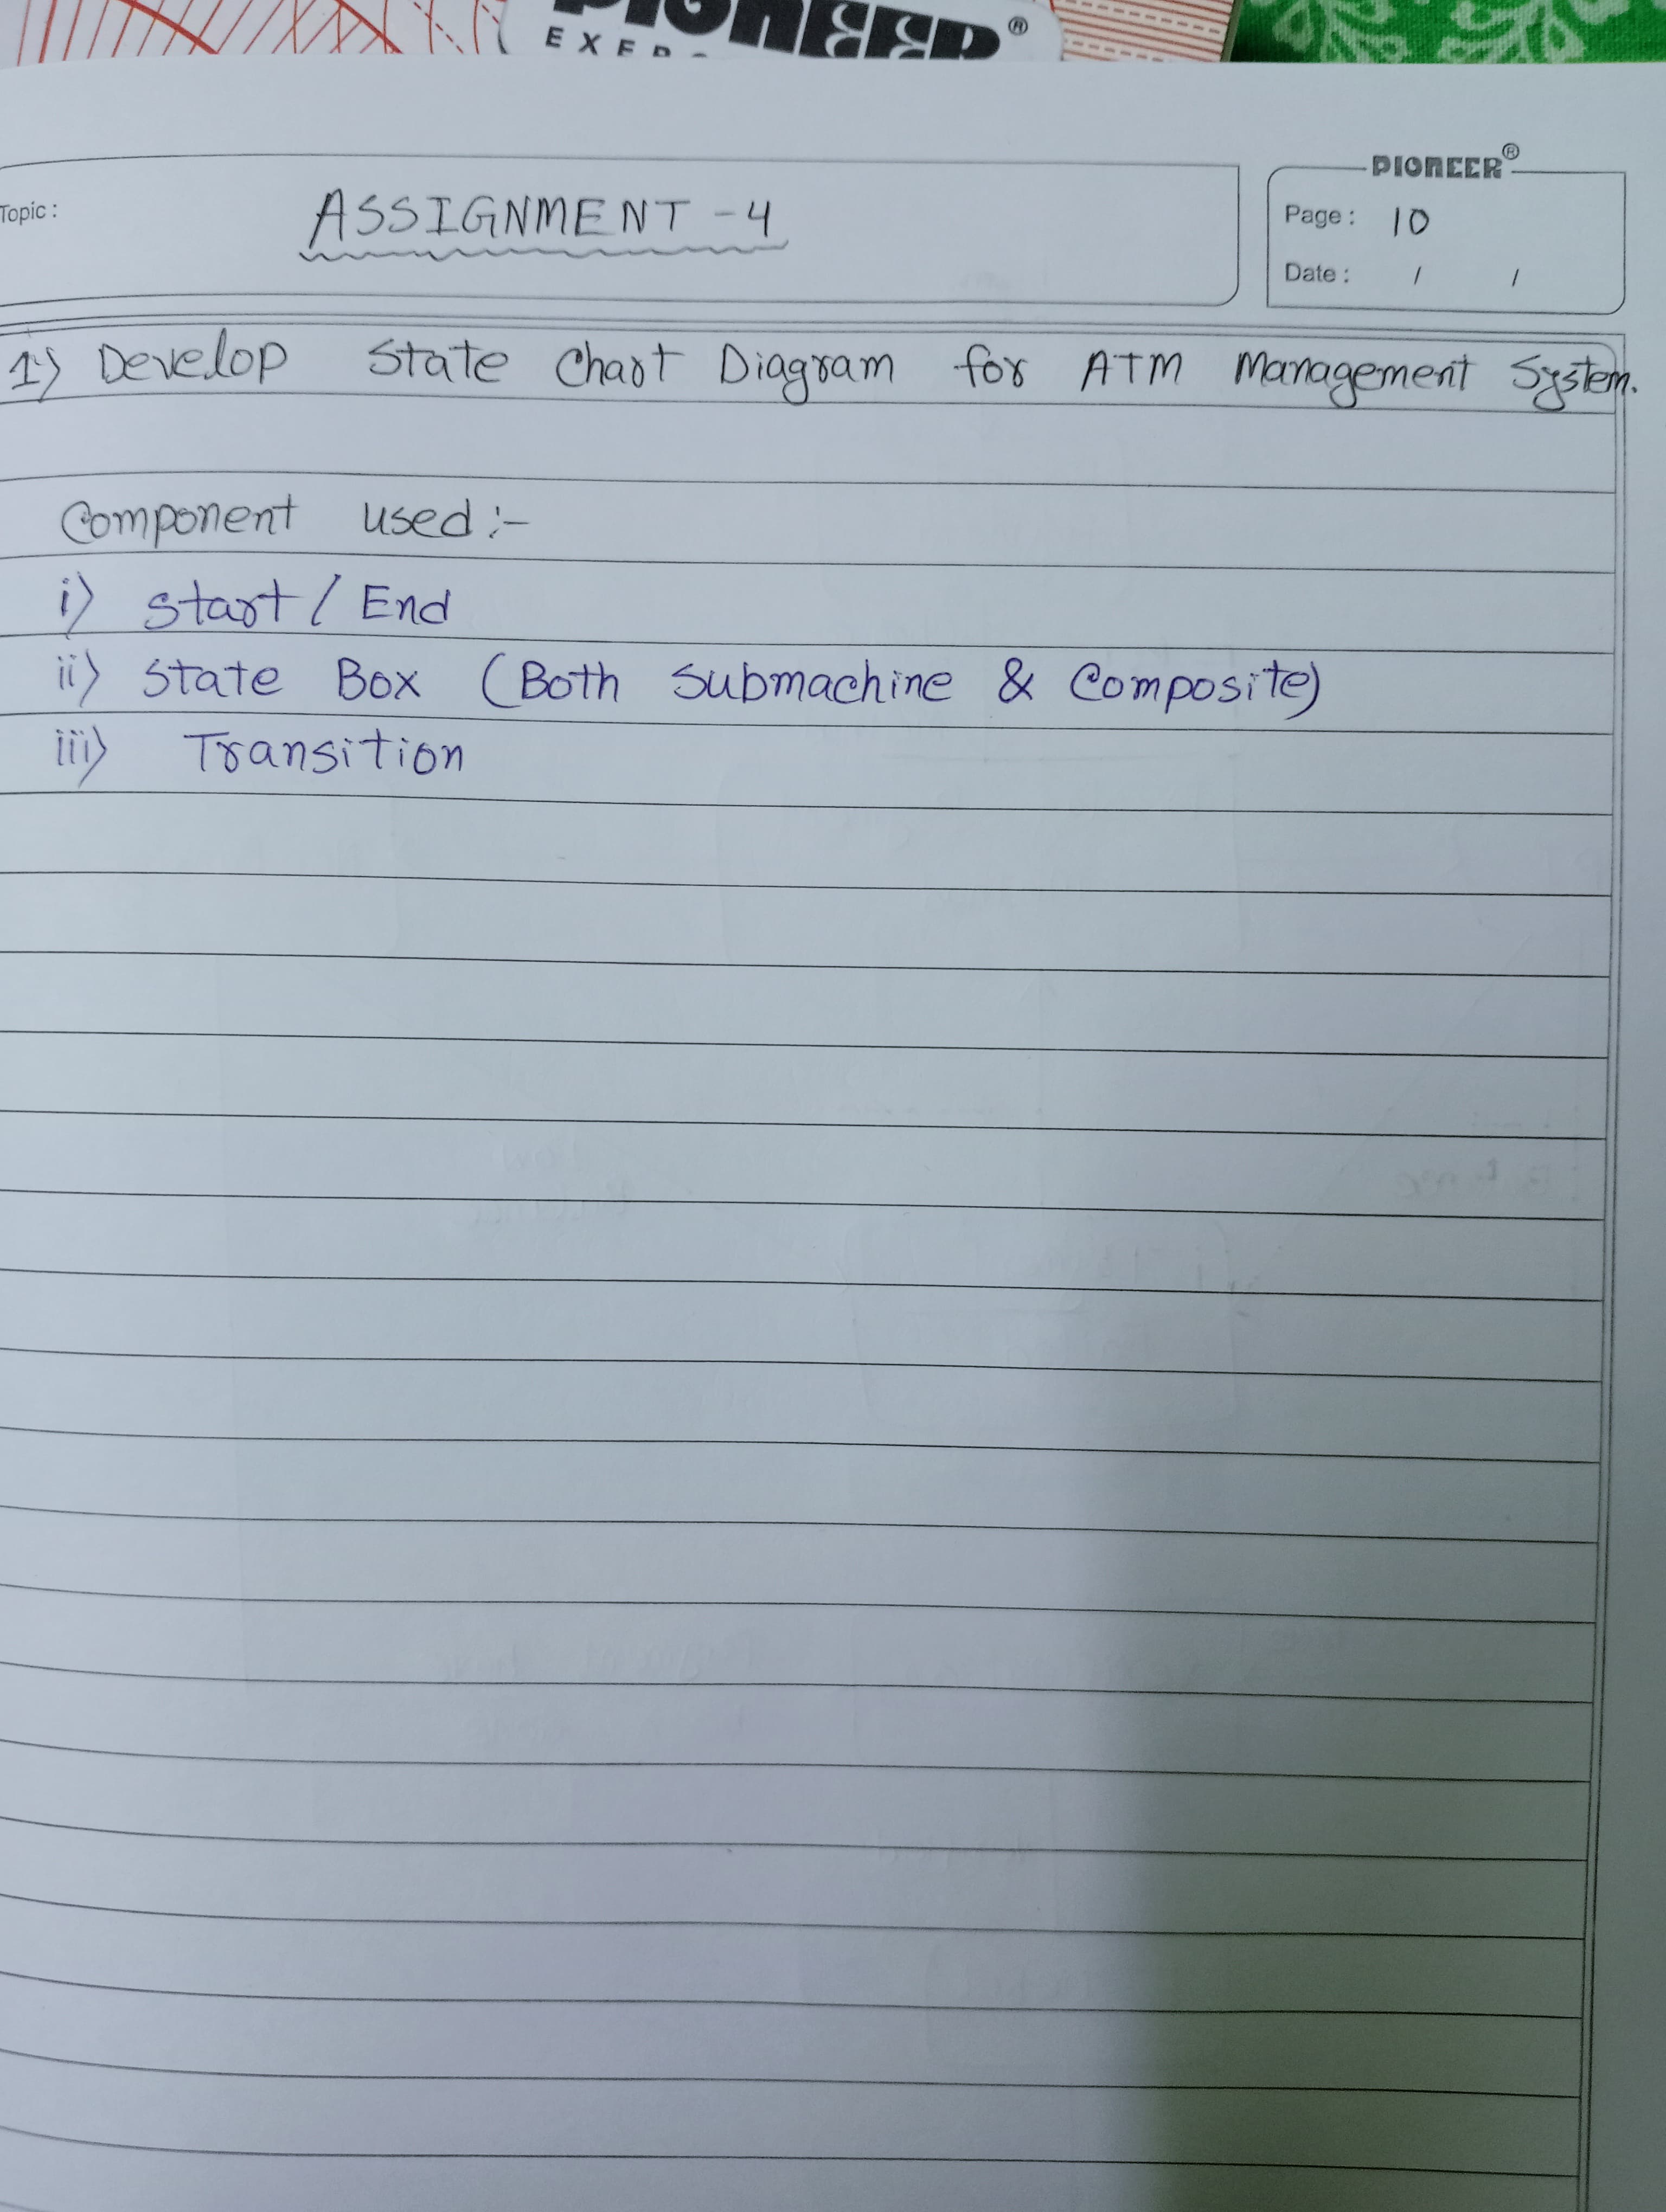 PIONEER®
Topic :
ASSIGNMENT - 4
PIONEER®
Page : 10
Date : / /
1) Develop State Chart Diagram for ATM Management System.
Component used :-
i) Start / End
ii) State Box (Both Submachine & Composite)
iii) Transition